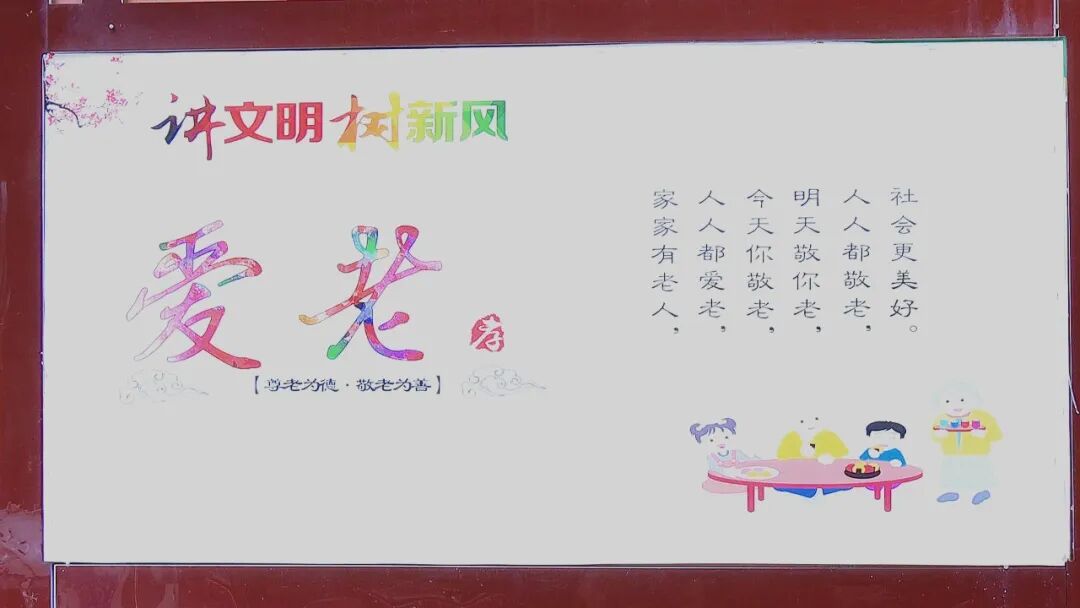 讲文明树新风
爱老
孝
【尊老为德·敬老为善】
家家有老人,
人人都爱老,
今天你敬老,
明天敬你老,
人人都敬老,
社会更美好。